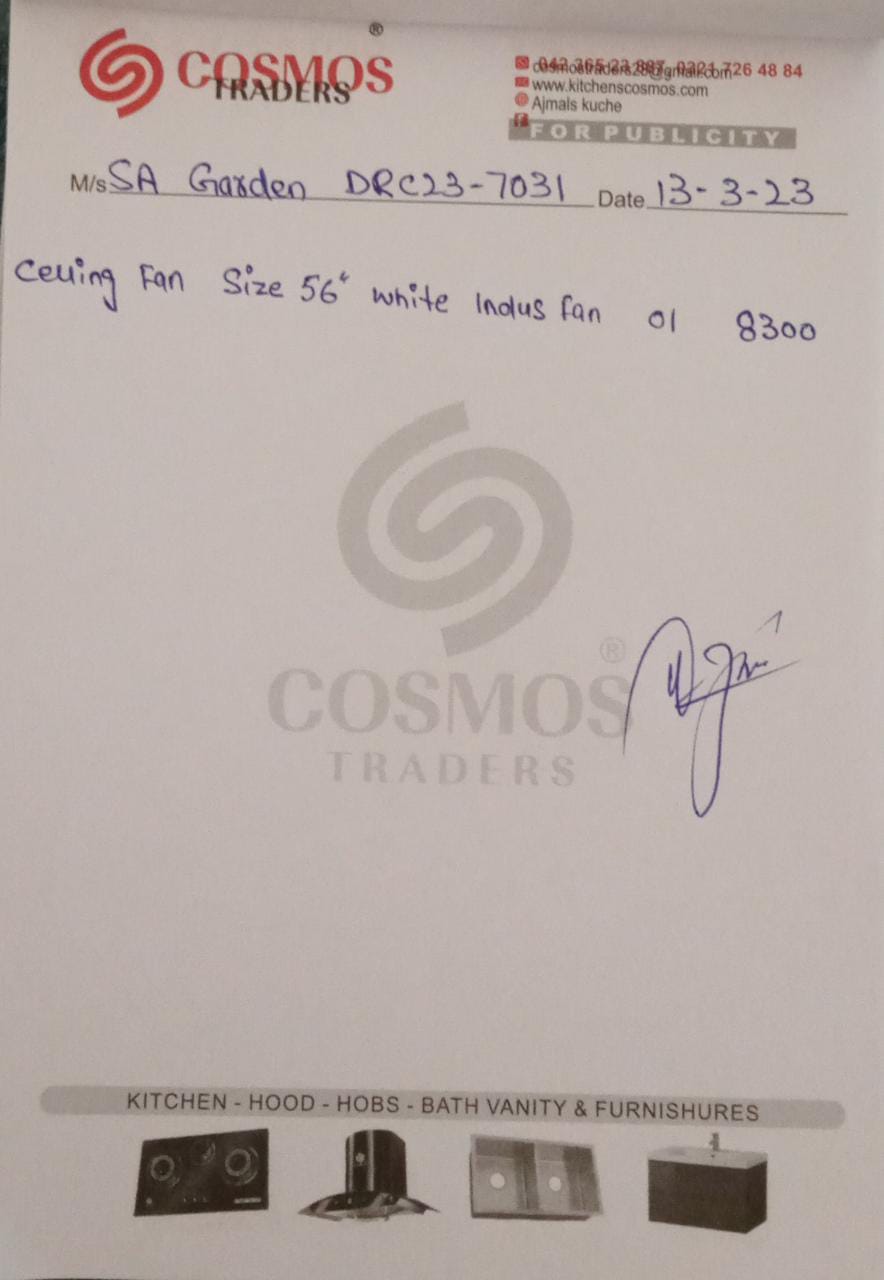 ®
COSMOS
TRADERS
cosmostraders28@gmail.com
www.kitchenscosmos.com
Ajmals kuche
FOR PUBLICITY
M/s SA Garden DRC23-7031 Date 13-3-23
Ceiling Fan Size 56" white Indus fan 01 8300
®
COSMOS
TRADERS
KITCHEN - HOOD - HOBS - BATH VANITY & FURNISHURES